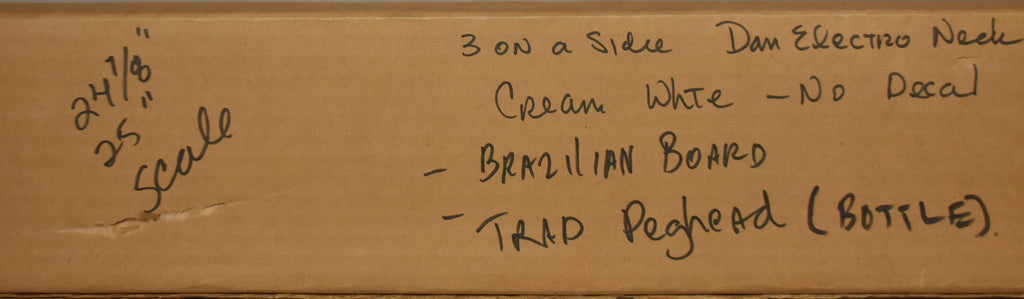 24 7/8"
25"
Scale
3 ON a Side Dan Electro Neck
Cream Whte - No Decal
- BRAZILIAN BOARD
- TRAD Peghead (BOTTLE).